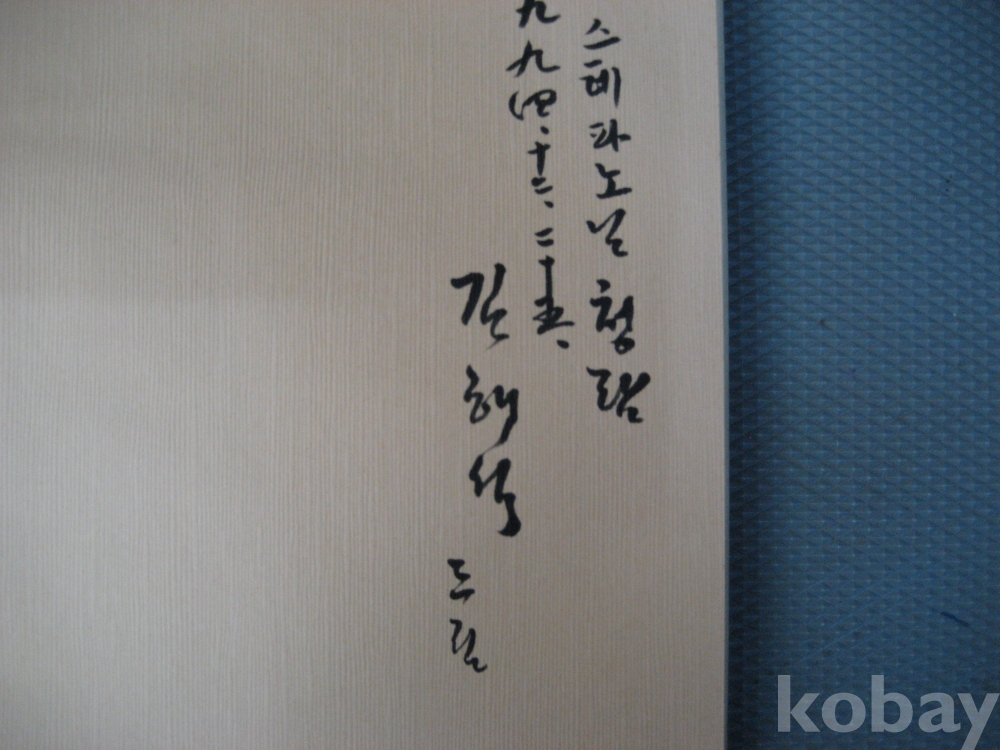 스테파노님 청람
九九四. 十二. 二十五.
김해석 드림
kobay